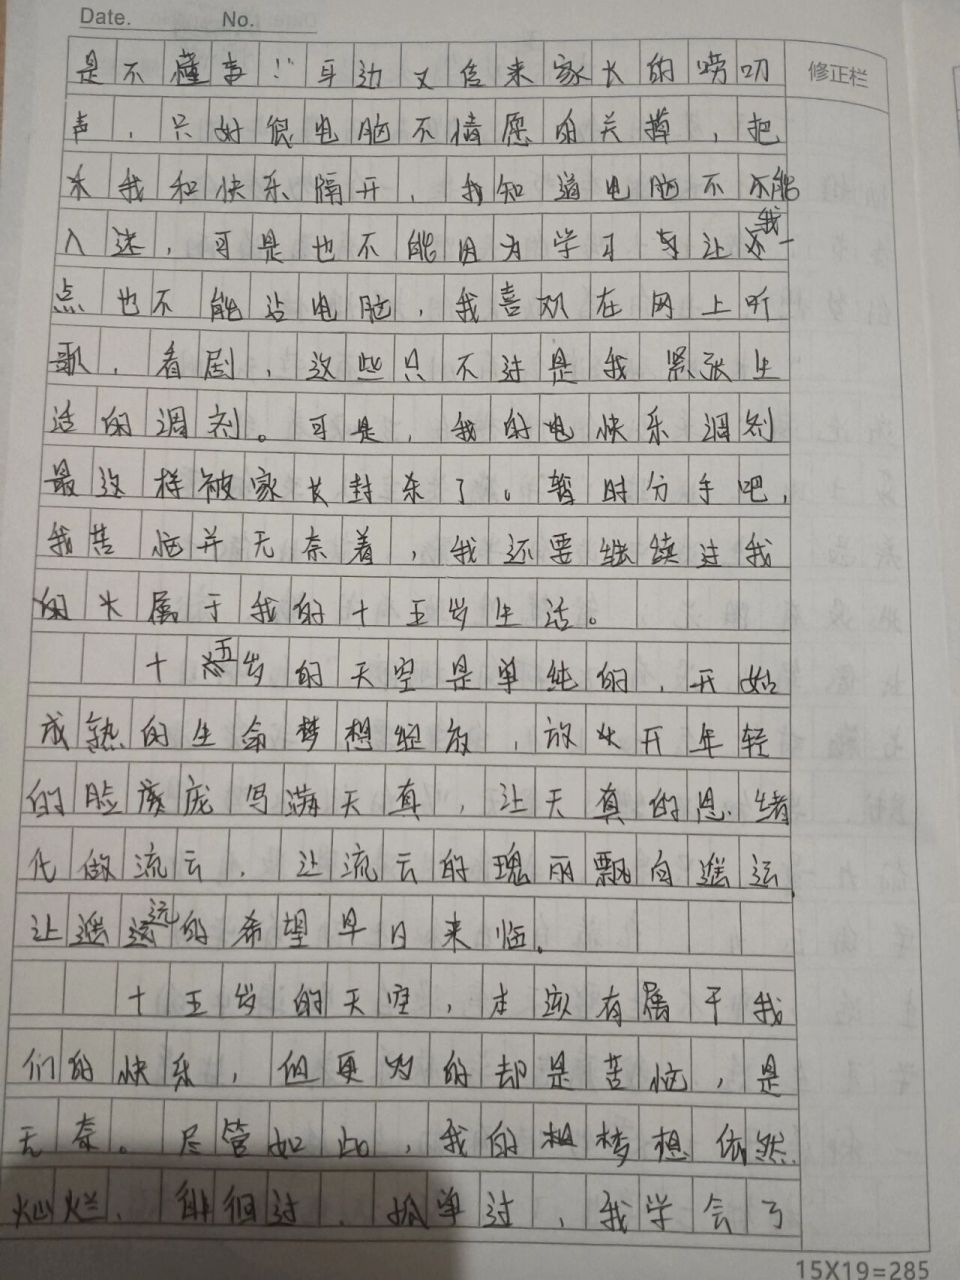 Date. No.
是不懂事!"耳边又信来家长的唠叨 修正栏
声,只好很电脑不情愿的关掉,把
我和快乐隔开,我知道电脑不不能
入迷,可是也不能因为学习与让我一
点也不能沾电脑,我喜欢在网上听
歌,看剧,这些只不过是我紧张生
活的调剂。可是,我的电快乐调剂
最这样被家长封杀了。暂时分手吧,
我苦恼并无奈着,我还要继续过我
的属于我的十五岁生活。
十五岁的天空是单纯的,开始
成熟的生命梦想绽放,放开年轻
的脸庞庞写满天真,让天真的思绪
化做流云,让流云的瑰丽飘向遥运,
让遥远的希望早日来临。
十五岁的天空,本该有属于我
们的快乐,但更为的却是苦恼,是
无奈。尽管如此,我的梦想依然
灿烂,徘徊过,孤单过,我学会了
15X19=285